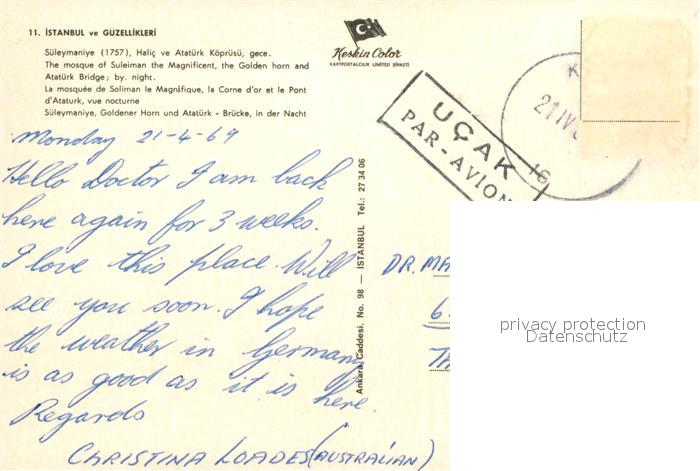 11. İSTANBUL ve GÜZELLİKLERİ
Süleymaniye (1757), Haliç ve Atatürk Köprüsü, gece.
The mosque of Suleiman the Magnificent, the Golden horn and
Atatürk Bridge; by. night.
La mosquée de Soliman le Magnifique, la Corne d'or et le Pont
d'Ataturk, vue nocturte
Süleymaniye, Goldener Horn und Atatürk - Brücke, in der Nacht
Keskin Color
KARTPOSTALCILIK LIMITED ŞİRKETİ
UÇAK
PAR-AVION
21 IV
16
Monday 21-4-69
Hello Doctor I am back
here again for 3 weeks.
I love this place. Will
see you soon. I hope
the weather in Germany
is as good as it is here.
Regards
CHRISTINA LOADES (AUSTRALIAN)
Ankara Caddesi, No. 98 — İSTANBUL Tel.: 27 34 06
DR. MA
6
TH
privacy protection
Datenschutz